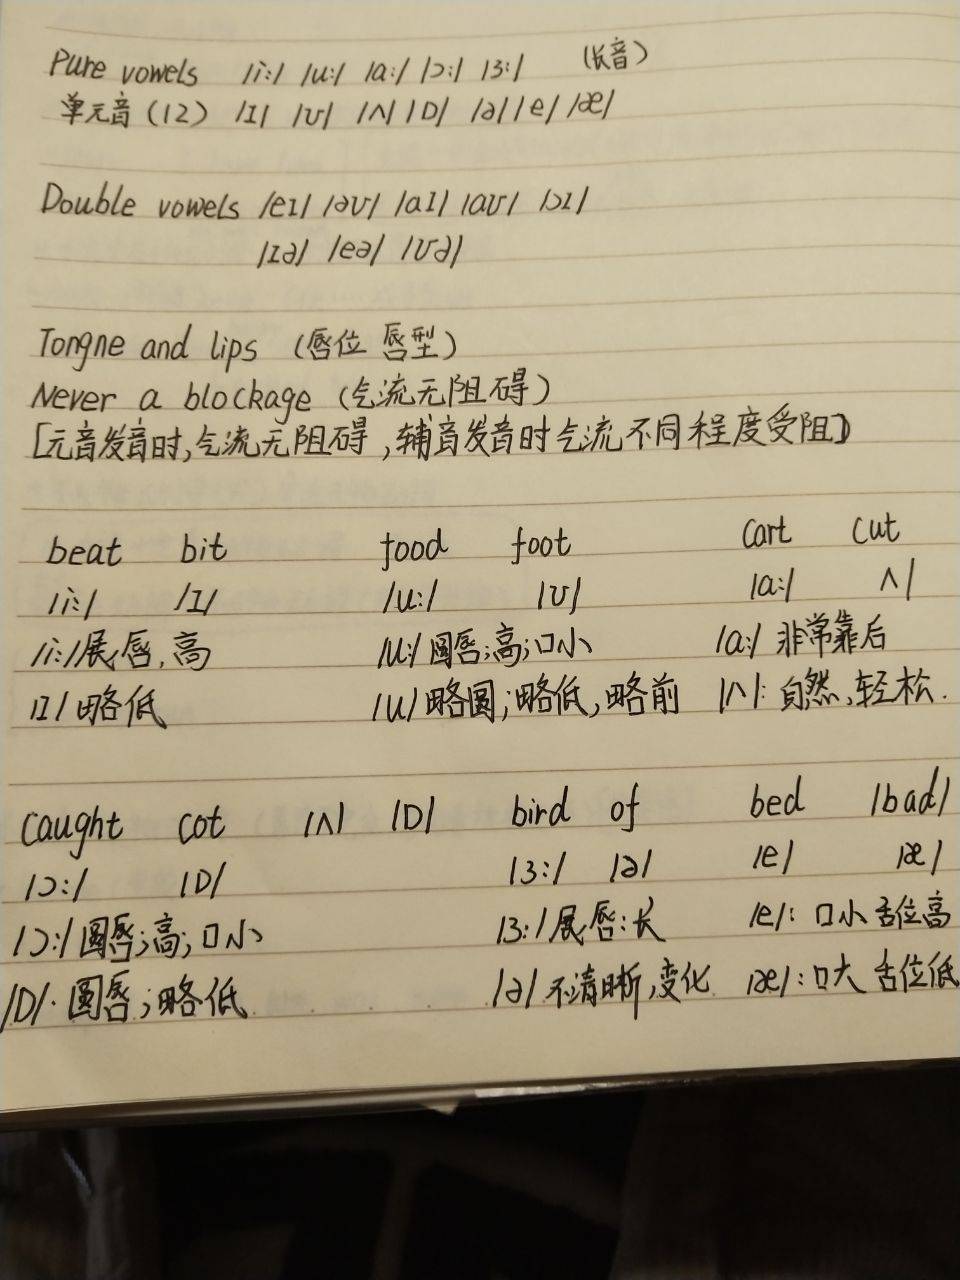 Pure vowels /i:/ /u:/ /a:/ /ɔ:/ /3:/ (长音)
单元音(12) /I/ /ʊ/ /ʌ/ /ɒ/ /ə/ /e/ /æ/
Double vowels /eI/ /əʊ/ /aI/ /aʊ/ /ɔI/
/Iə/ /eə/ /ʊə/
Tongne and lips (唇位 唇型)
Never a blockage (气流无阻碍)
[元音发音时,气流无阻碍,辅音发音时气流不同程度受阻]
beat bit food foot cart cut
/i:/ /I/ /u:/ /ʊ/ /a:/ ʌ/
/i:/展唇,高 /u:/ 圆唇;高;口小 /a:/ 非常靠后
/I/ 略低 /u/ 略圆;略低,略前 /ʌ/: 自然,轻松.
caught cot /ʌ/ /ɒ/ bird of bed /bad/
/ɔ:/ /ɒ/ /3:/ /ə/ /e/ /æ/
/ɔ:/ 圆唇;高;口小 /3:/ 展唇:长 /e/: 口小 舌位高
/ɒ/. 圆唇;略低 /ə/ 不清晰,变化 /æ/: 口大 舌位低